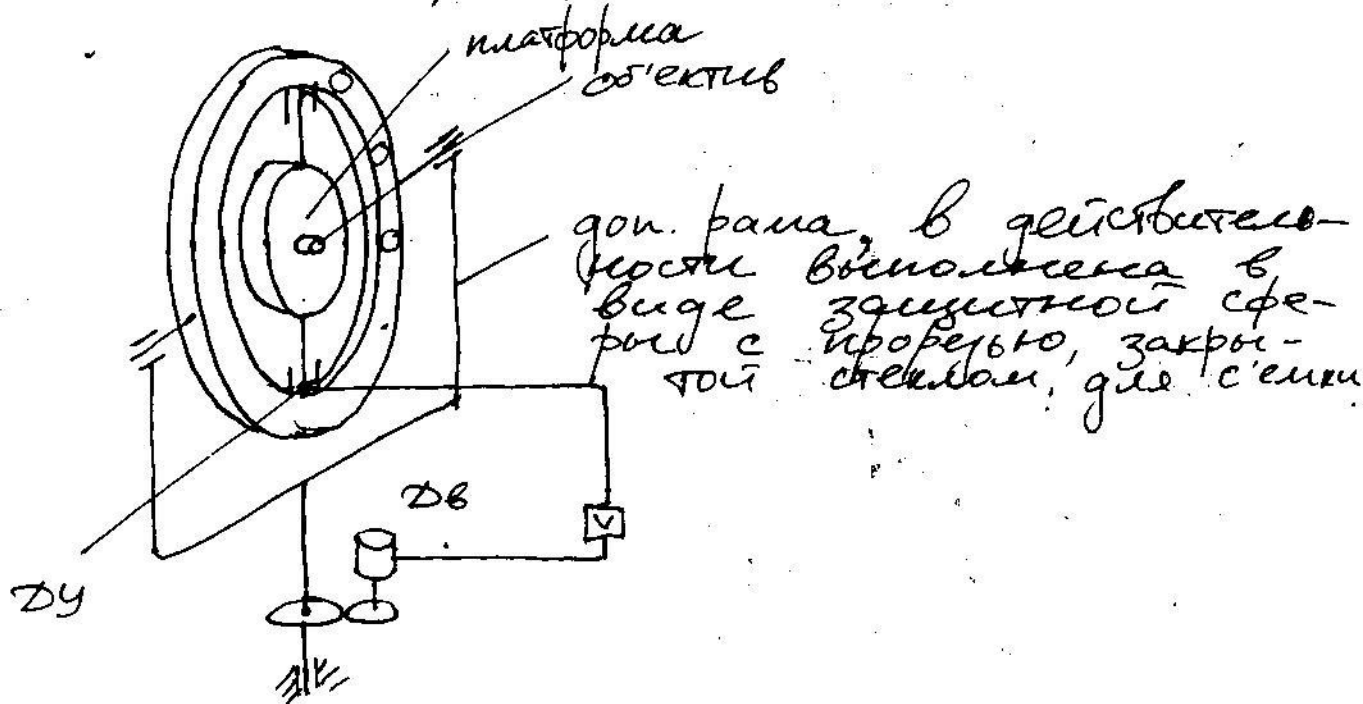 платформа
об'ектив
доп. рама, в действитель-
ности выполнена в
виде защитной сфе-
ры с прорезью, закры-
той стеклом, для с'емки
Дв
У
ДУ